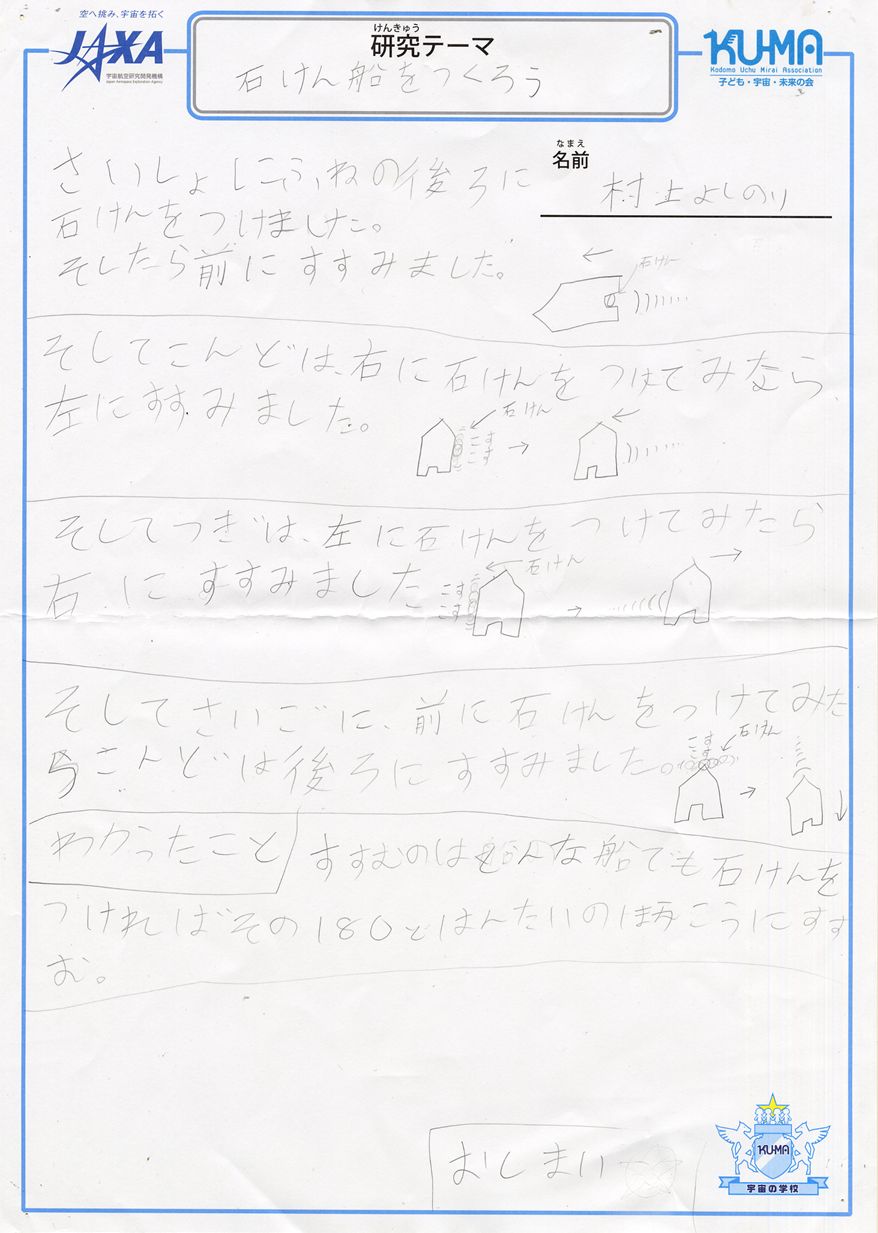 空へ挑み、宇宙を拓く
JAXA
宇宙航空研究開発機構
Japan Aerospace Exploration Agency
けんきゅう
研究テーマ
石けん船をつくろう
KU-MA
Kodomo Uchu Mirai Association
子ども・宇宙・未来の会
なまえ
名前
村上よしのり
さいしょにふねの後ろに
石けんをつけました。
そしたら前にすすみました。
石けん
そしてこんどは、右に石けんをつけてみたら、
左にすすみました。
石けん
こす
こす
そしてつぎは、左に石けんをつけてみたら
右にすすみました
石けん
こす
こす
そしてさいごに、前に石けんをつけてみた
らこんどは後ろにすすみました。
こす
こす
石けん
わかったこと
すすむのはどんな船でも石けんを
つければその180どはんたいのほうこうにすす
む。
おしまい
KU-MA
宇宙の学校